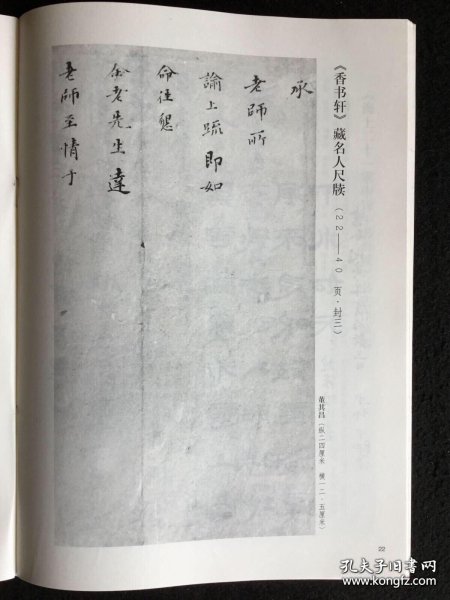 《香书轩》藏名人尺牍
（22——40页·封三）
承
老師所
諭上疏即如
命往懇
金老先生達
老師至情于
董其昌（纵二四厘米 横一二·五厘米）
22
孔夫子旧书网
www.kongfz.com